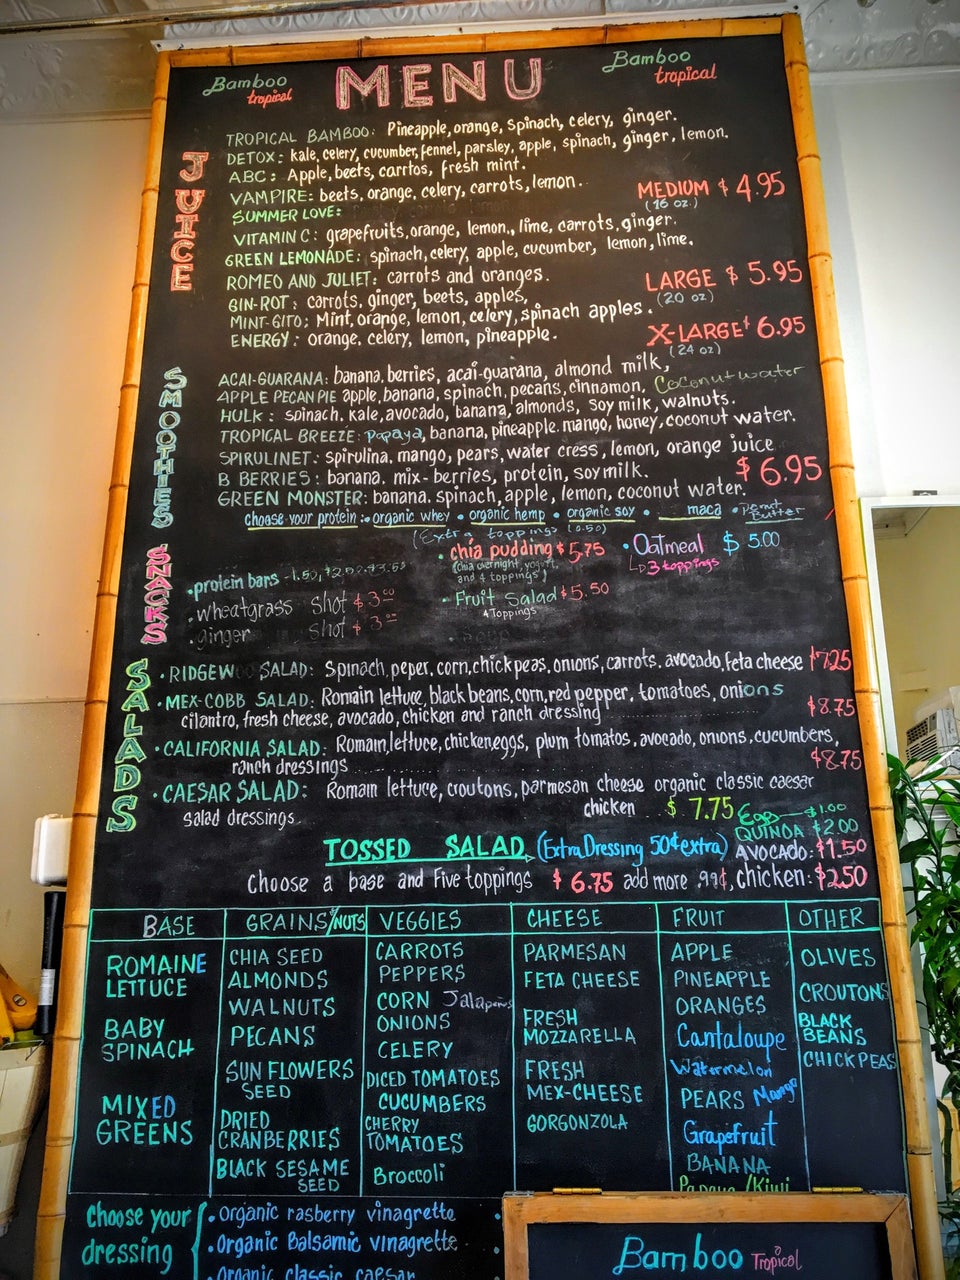 Bamboo tropical
MENU
Bamboo tropical
JUICE
TROPICAL BAMBOO: Pineapple, orange, spinach, celery, ginger.
DETOX: kale, celery, cucumber, fennel, parsley, apple, spinach, ginger, lemon.
ABC: Apple, beets, carrtos, fresh mint.
VAMPIRE: beets, orange, celery, carrots, lemon.
SUMMER LOVE:
VITAMIN C: grapefruits, orange, lemon, lime, carrots, ginger.
GREEN LEMONADE: spinach, celery, apple, cucumber, lemon, lime.
ROMEO AND JULIET: carrots and oranges.
GIN-ROT: carrots, ginger, beets, apples,
MINT-GITO: Mint, orange, lemon, celery, spinach apples.
ENERGY: orange, celery, lemon, pineapple.
MEDIUM $ 4.95
(16 oz.)
LARGE $ 5.95
(20 oz)
X-LARGE $ 6.95
(24 oz)
SMOOTHIES
ACAI-GUARANA: banana, berries, acai-guarana, almond milk,
APPLE PECAN PIE apple, banana, spinach, pecans, cinnamon, Coconut water
HULK: spinach, kale, avocado, banana, almonds, soy milk, walnuts.
TROPICAL BREEZE: papaya, banana, pineapple, mango, honey, coconut water.
SPIRULINET: spirulina, mango, pears, water cress, lemon, orange juice
B BERRIES: banana, mix-berries, protein, soy milk.
GREEN MONSTER: banana, spinach, apple, lemon, coconut water.
$ 6.95
choose your protein: • organic whey • organic hemp • organic soy • maca • Peanut Butter
(Extra toppings (0.50)
SNACKS
• protein bars
• wheatgrass shot $ 3.00
• ginger shot $ 3.00
• chia pudding $ 5.75
(chia overnight, yogurt, and 4 toppings)
• Fruit Salad $ 5.50
4 Toppings
• Oatmeal $ 5.00
3 toppings
SALADS
• RIDGEW SALAD: Spinach, peper, corn, chickpeas, onions, carrots, avocado, feta cheese $7.25
• MEX-COBB SALAD: Romain lettuce, black beans, corn, red pepper, tomatoes, onions
cilantro, fresh cheese, avocado, chicken and ranch dressing $8.75
• CALIFORNIA SALAD: Romain, lettuce, chicken, eggs, plum tomatos, avocado, onions, cucumbers,
ranch dressings $8.75
• CAESAR SALAD: Romain lettuce, croutons, parmesan cheese organic classic caesar
salad dressings. chicken $ 7.75
Egg $1.00
QUINOA $2.00
TOSSED SALAD (Extra Dressing 50¢ extra) AVOCADO: $1.50
Choose a base and Five toppings $ 6.75 add more .99¢, chicken: $2.50
BASE
ROMAINE LETTUCE
BABY SPINACH
MIXED GREENS
GRAINS/NUTS
CHIA SEED
ALMONDS
WALNUTS
PECANS
SUN FLOWERS SEED
DRIED CRANBERRIES
BLACK SESAME SEED
VEGGIES
CARROTS
PEPPERS
CORN Jalapeños
ONIONS
CELERY
DICED TOMATOES
CUCUMBERS
CHERRY TOMATOES
Broccoli
CHEESE
PARMESAN
FETA CHEESE
FRESH MOZZARELLA
FRESH MEX-CHEESE
GORGONZOLA
FRUIT
APPLE
PINEAPPLE
ORANGES
Cantaloupe
Watermelon
PEARS Mango
Grapefruit
BANANA
Papaya/Kiwi
OTHER
OLIVES
CROUTONS
BLACK BEANS
CHICKPEAS
Choose your dressing
• organic rasberry vinagrette
• Organic Balsamic vinagrette
• Organic classic caesar
Bamboo Tropical